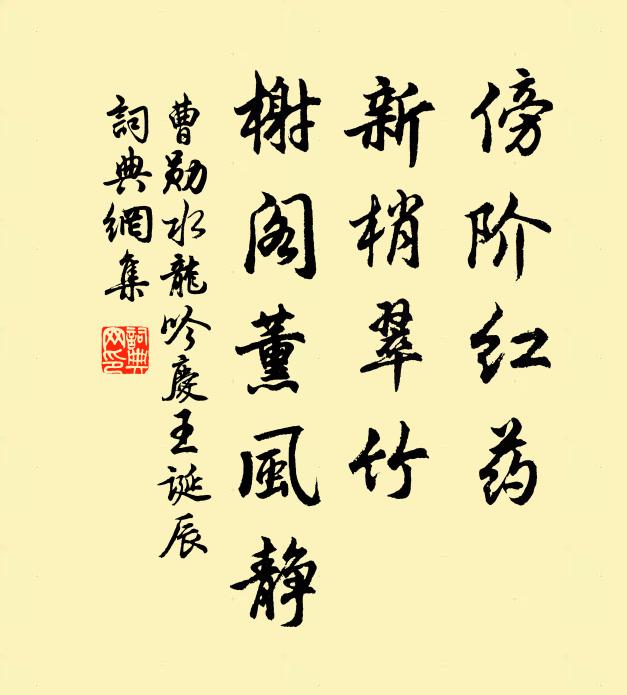 傍阶红药
新梢翠竹
榭阁薰風静
曹勛水龍吟慶王誕辰
詞典網集
詞典网印